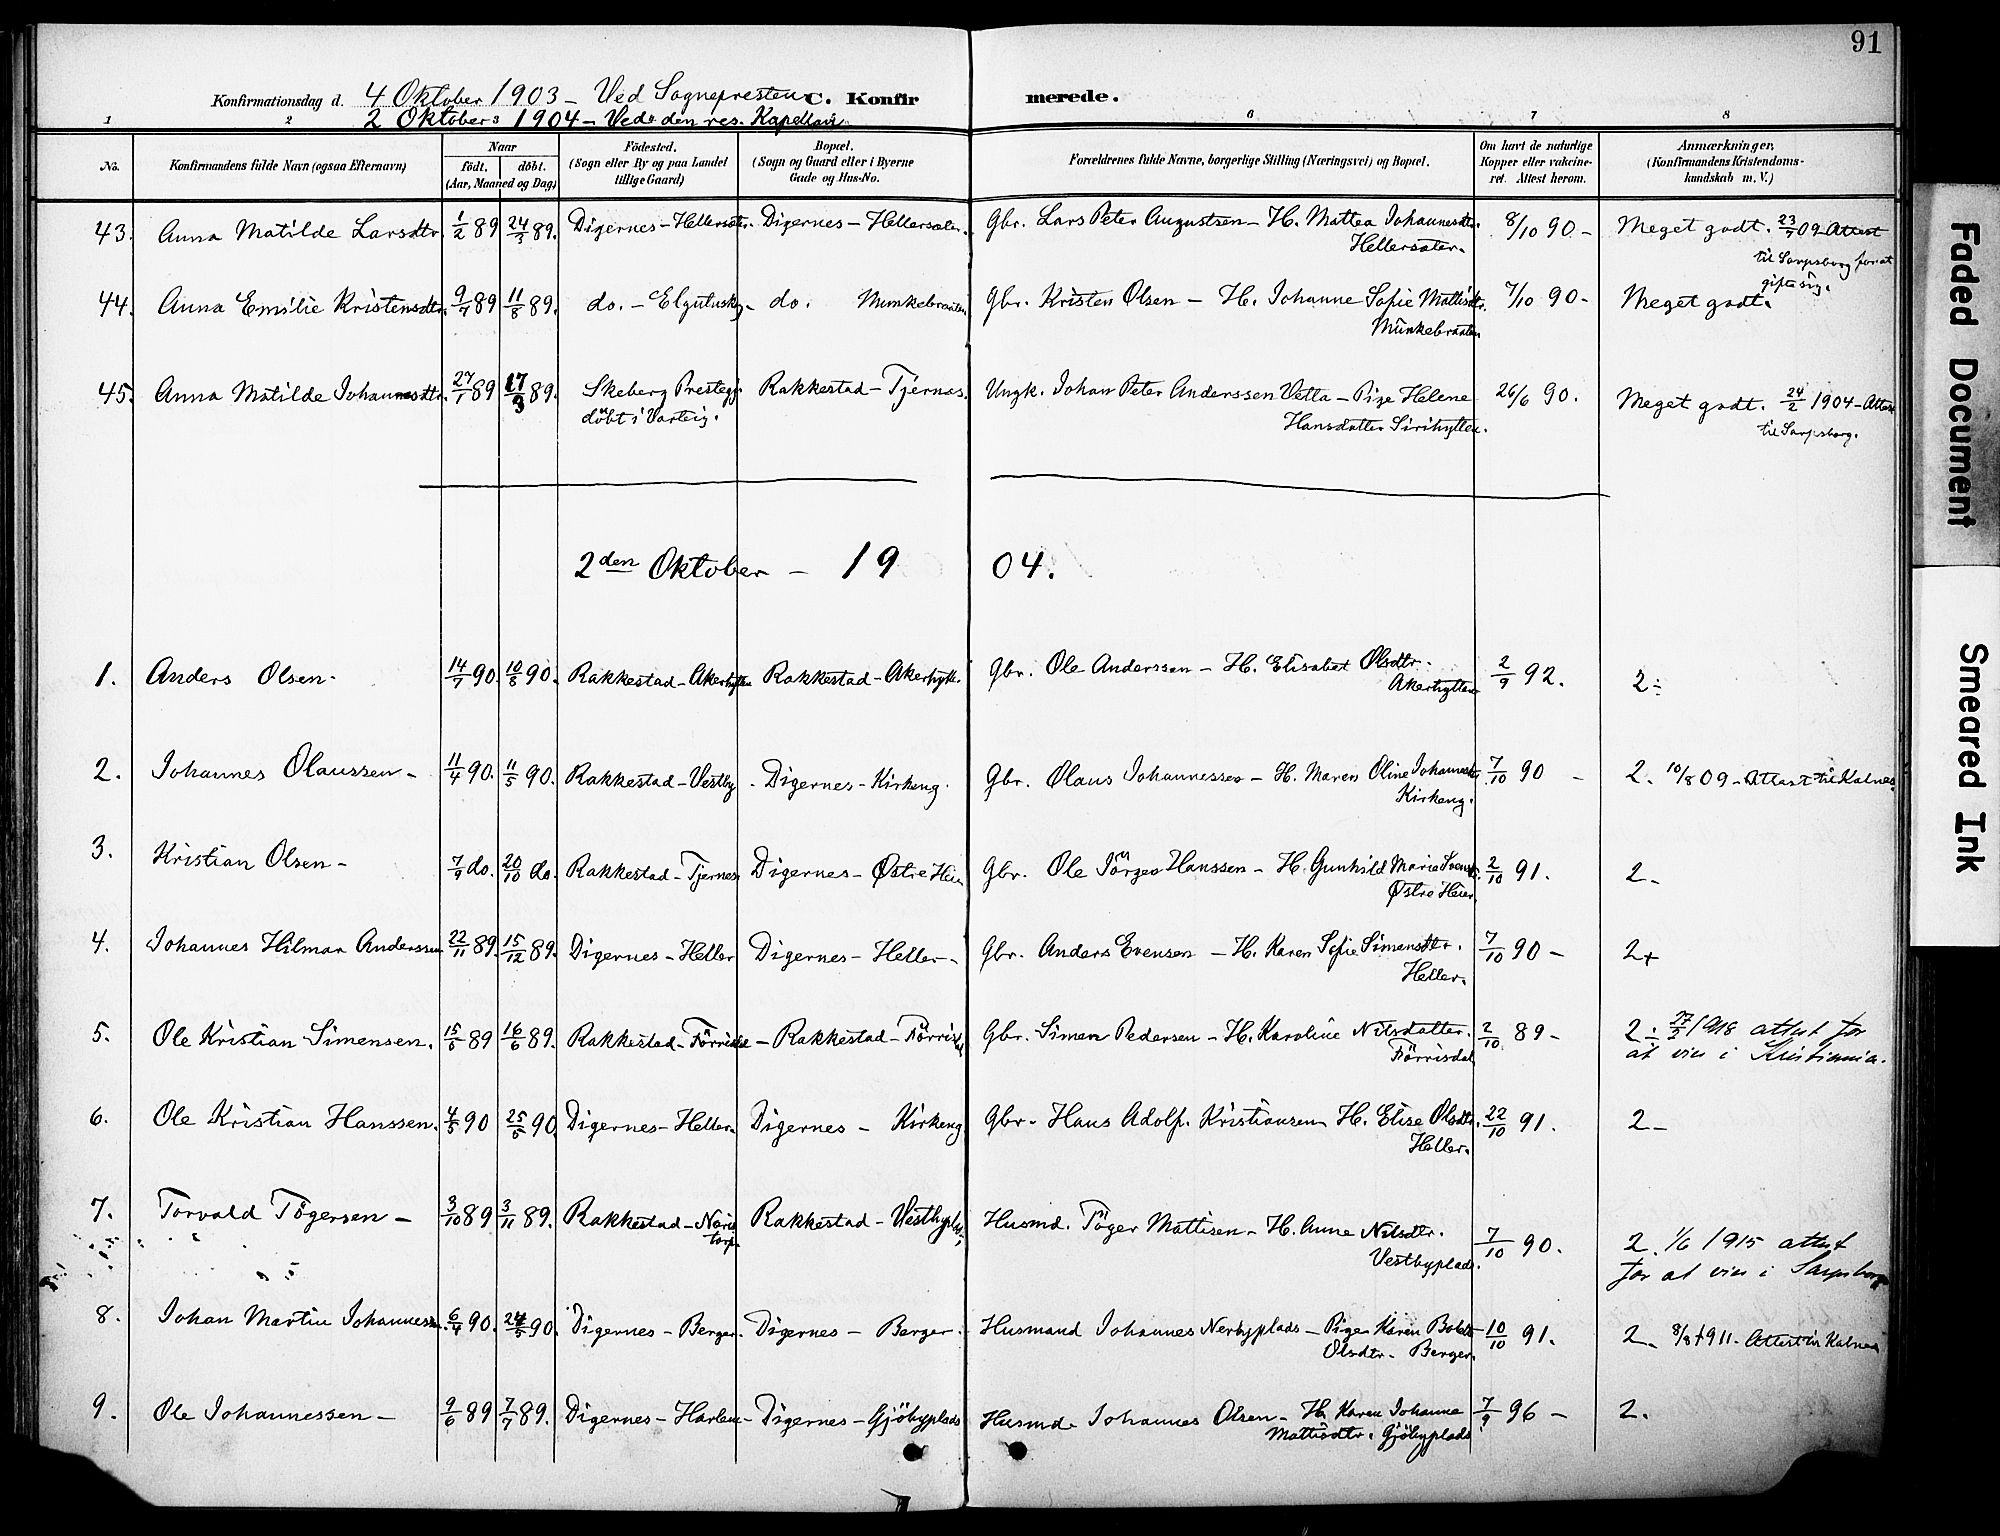 91
Konfirmationsdag d. 4 Oktober 1903 – Ved Sognepresten C. Konfirmerede.
2 Oktober 1904 – Ved den res. Kapellan
1 2 3 6 7 8
No. Konfirmandens fulde Navn (ogsaa Efternavn) Naar født, døbt. (Aar, Maaned og Dag) Fødested. (Sogn eller By og paa Landet tillige Gaard) Bopæl. (Sogn og Gaard eller i Byerne Gade og Hus-No. Forældrenes fulde Navne, borgerlige Stilling (Næringsvei) og Bopæl. Om havt de naturlige Kopper eller vakcineret. Attest herom. Anmærkninger. (Konfirmandens Kristendomskundskab m. V.)
43. Anna Matilde Larsdtr. 1/2 89 24/3 89. Digernes – Hellersæter. Digernes – Hellersæter. Gbr. Lars Peter Augustsen – H. Mattea Johannesdtr. 8/10 90 – Meget godt. 23/7 09 – Attest
Hellersæter. til Sarpsborg for at
gifte sig.
44. Anna Emilie Kristensdtr. 9/7 89 11/8 89. do. – do. Munkebraaten Gbr. Kristen Olsen – H. Johanne Sofie Mattisdtr. 7/10 90 – Meget godt.
Munkebraaten
45. Anna Matilde Johannesdtr. 27/1 89 17/3 89. Skeberg Prestegj. Rakkestad – Tjernes. Ungk. Johan Peter Anderssen Vetla – Pige Helene 26/6 90. Meget godt. 24/2 1904 – Attest
döbt i Varteig. Hansdatter Sirihytten. til Sarpsborg.
2den Oktober – 1904.
1. Anders Olsen – 14/7 90. 10/8 90. Rakkestad – Akerhytten Rakkestad – Akerhytt. Gbr. Ole Anderssen – H. Elisabet Olsdtr. 2/9 92. 2 ÷
Akerhytten
2. Johannes Olaussen – 11/4 90. 11/5 90. Rakkestad – Vestby. Digernes – Kirkeng. Gbr. Olaus Johannessen – H. Maren Oline Johannesdtr. 7/10 90 – 2. 10/8 09 – Attest til Kalnes
Kirkeng.
3. Kristian Olsen – 7/9 do. 20/10 do. Rakkestad – Tjernes Digernes – Østre Heier Gbr. Ole Jörgen Hanssen – H. Gunhild Marie Svensdtr. 2/10 91. 2 –
Østre Heier.
4. Johannes Hilmar Anderssen 22/11 89. 15/12 89. Digernes – Heller Digernes – Heller – Gbr. Anders Evensen – H. Karen Sofie Simensdtr. 7/10 90 – 2+
Heller.
5. Ole Kristian Simensen. 15/5 89 16/6 89. Rakkestad – Förrisdal – Rakkestad – Förrisdal Gbr. Simen Pedersen – H. Karoline Nilsdatter. 2/10 89 – 2 ÷ 1918 attest for
Förrisdal at vies i Kristiania.
6. Ole Kristian Hanssen. 4/5 90 25/5 90. Digernes – Heller. Digernes – Kirkeng Gbr. – Hans Adolf Kristiansen H. Elise Olsdtr. 22/10 91. 2 –
Heller.
7. Torvald Tögersen – 3/10 89 3/11 89. Rakkestad – Rakkestad – Vestbyplds. Husmd. Töger Mattisen – H. Anne Nilsdtr. 7/10 90. 2. 1/6 1915 attest
Vestbyplads. for at vies i Sarpsborg
8. Johan Martin Johannessen. 6/4 90. 24/5 90. Digernes – Berger. Digernes – Berger. Husmand Johannes Nerbyplads – Pige Karen 10/10 91. 2 – 8/8 1911 – Attest til Kalnes
Olsdtr. Berger.
9. Ole Johannessen – 9/6 89 7/7 89. Digernes – Digernes – Gjöbyplads Husmd. Johannes Olsen – H. Karen Johanne 7/9 96 – 2.
Mattisdtr. Gjöbyplads
Faded Document
Smeared Ink